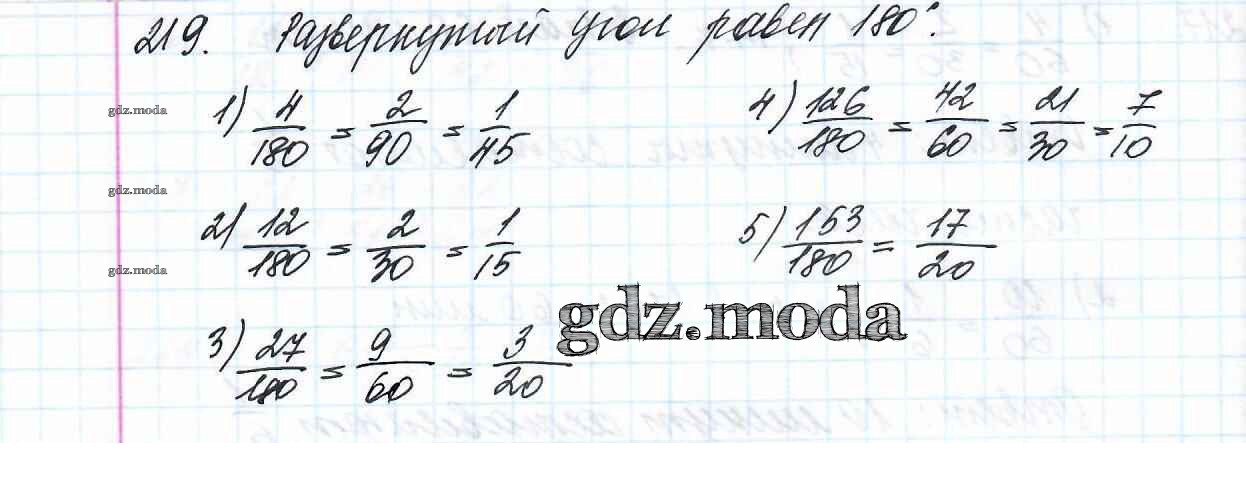 219. Развернутый угол равен 180°.
gdz.moda
1) 4/180 = 2/90 = 1/45
4) 126/180 = 42/60 = 21/30 = 7/10
gdz.moda
2) 12/180 = 2/30 = 1/15
5) 153/180 = 17/20
gdz.moda
gdz.moda
3) 27/180 = 9/60 = 3/20